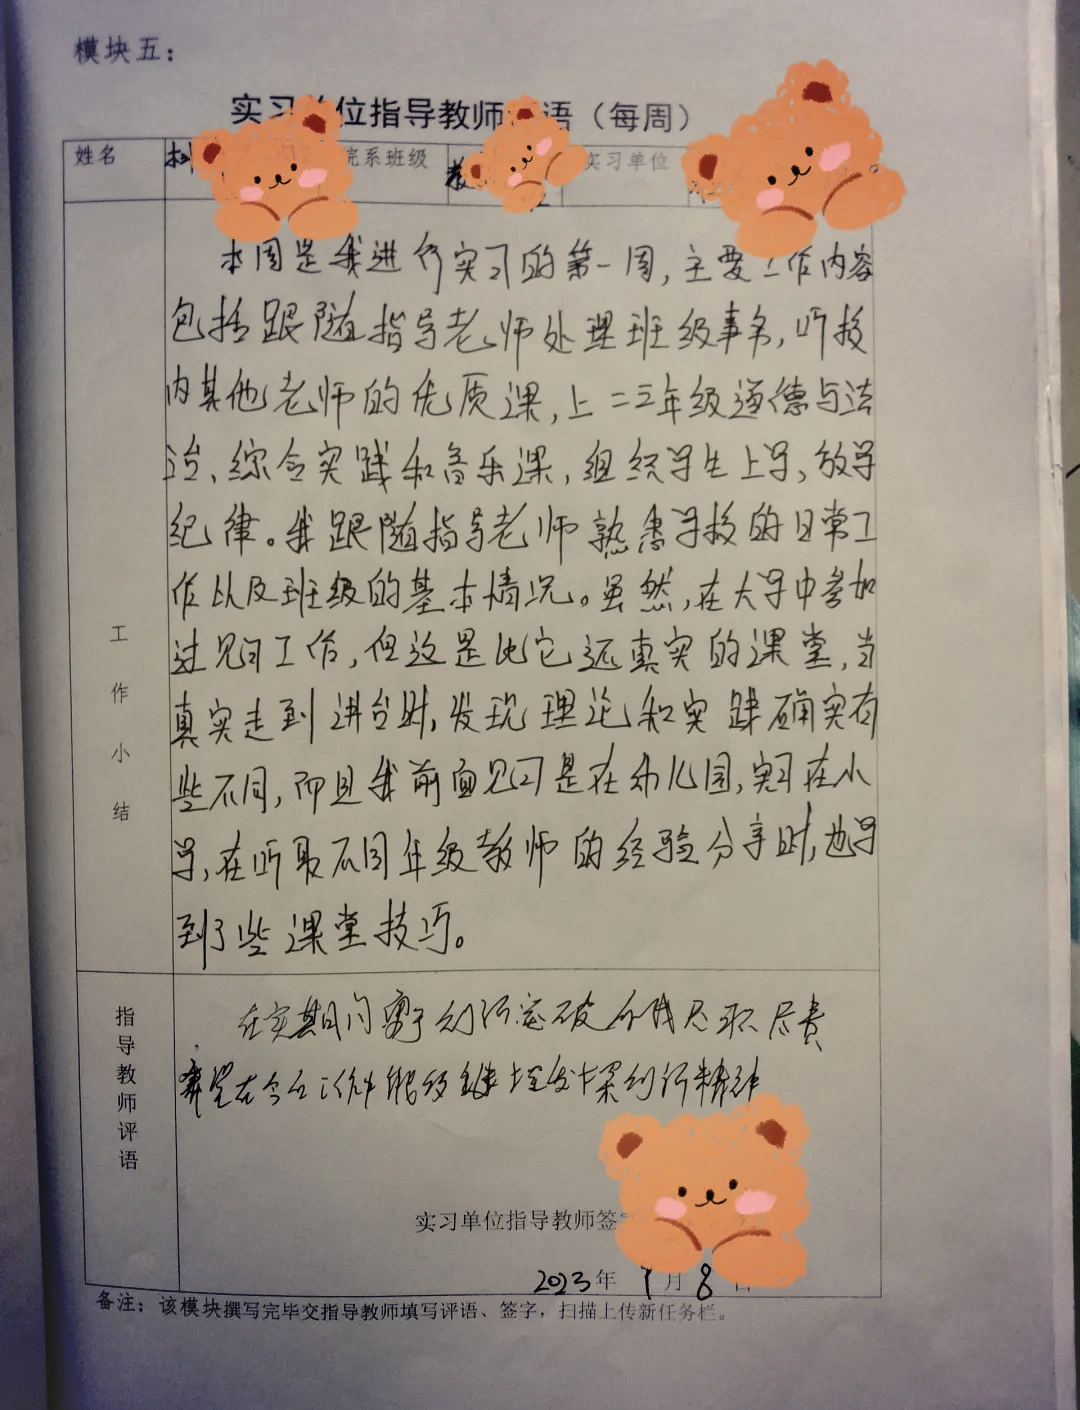 模块五：
实习单位指导教师评语（每周）
姓名 院系班级 实习单位
本周是我进行实习的第一周，主要工作内容
包括跟随指导老师处理班级事务，听校
内其他老师的优质课，上二三年级道德与法
治、综合实践和音乐课，组织学生上学、放学
纪律。我跟随指导老师熟悉学校的日常工
作以及班级的基本情况。虽然，在大学中参加
过见习工作，但这是比它还真实的课堂，当
真实走到讲台时，发现理论和实践确实有
些不同，而且我前面见习是在幼儿园，实习在小
学，在听取不同年级教师的经验分享时，也学
到了些课堂技巧。
工作小结
指导教师评语
在实期间勇于创新 尽职尽责
希望在今后工作中能够继 精神
实习单位指导教师签
2023年 月8日
备注：该模块撰写完毕交指导教师填写评语、签字，扫描上传新任务栏。